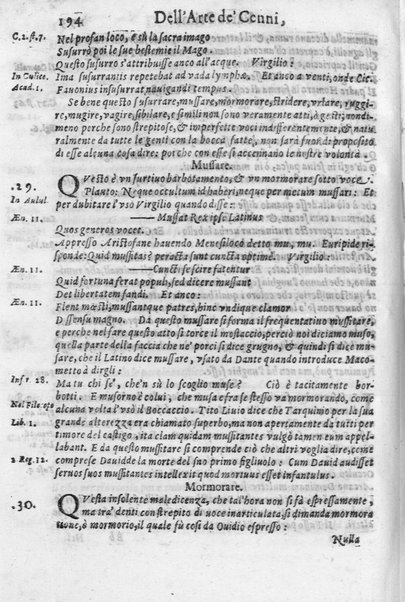 194 Dell'Arte de' Cenni,
C.2.st.7. Nel profan loco, e sù la sacra imago
Susurrò poi le sue bestemie il Mago.
Questo susurro s'attribuisce anco all'acque. Virgilio:
In Culice. Ima susurrantis repetebat ad vada lymphæ. Et anco a venti, onde Cic.
Acad. 1. Fauonius insusurrat nauigandi tempus.
Se bene questo susurrare, mussare, mormorare, stridere, vrlare, ruggire, mugire, vagire, sibilare, e simili non sono veramente atti, ò gesti; nondimeno perche sono strepitose, & imperfette voci indifferentemente, & naturalmente da tutte le genti con la bocca fatte, non farà fuor di proposito
di esse alcuna cosa dire; perche con esse si accennano le nostre volontà
Mussare.
.29. Qvesto è vn furtiuo barbottamento, & vn mormorare sotto voce
In Aulul. Planto. Neque occultum id haberi, neque per metum mussari: Et
per dubitare l'vsò Virgilio quando disse:
Æn. 11. ——Mussat Rex ipse Latinus
Quos generos vocet.
Appresso Aristofane hauendo Menesiloco detto mu, mu. Euripide risponde: Quid mussitas? peracta sunt cuncta optimè. Virgilio:
Æn. 11. ——Cuncti se scire fatentur
Quid fortuna ferat populi, sed dicere mussant
Æn. 11. Det libertatem fandi. Et anco:
Flent mœsti, mussantque patres, hinc vndique clamor
Dissensu magno. Da questo mussare si forma il frequentatiuo mussitare,
e perche nel fare questo atto si torce il mostaccio, perciò noi diciamo muso,
quella parte della faccia che ne' porci si dice grugno, & quindi si dice musare, che il Latino dice mussare, vsato da Dante quando introduce Macometto à dirgli:
Infr. 28. Ma tu chi se', che'n sù lo scoglio muse? Ciò è tacitamente borbotti. E musorno è colui, che musa fra se stesso va mormorando, come
Nel Filocopo alcuna volta l'vsò il Boccaccio. Tito Liuio dice che Tarquinio per la sua
Lib. 1. grande alterezza era chiamato superbo, ma non apertamente da tutti per
timore del castigo, ita clam quidam mussitantes vulgò tamen eum appellabant. E da questo mussitare si comprende ciò che altri voglia dire, come
2 Reg. 12. comprese Dauidde la morte del suo primo figliuolo: Cum Dauid audisset
seruos suos mussitantes intellexit quod mortuus esset infantulus.
Mormorare.
.30. Qvesta insolente maledicenza, che tal'hora non si fà espressamente,
ma tra' denti con strepito di uoce inarticulata, si dimanda mormoratione, ò mormorio, il quale fù così da Ouidio espresso:
Nulla